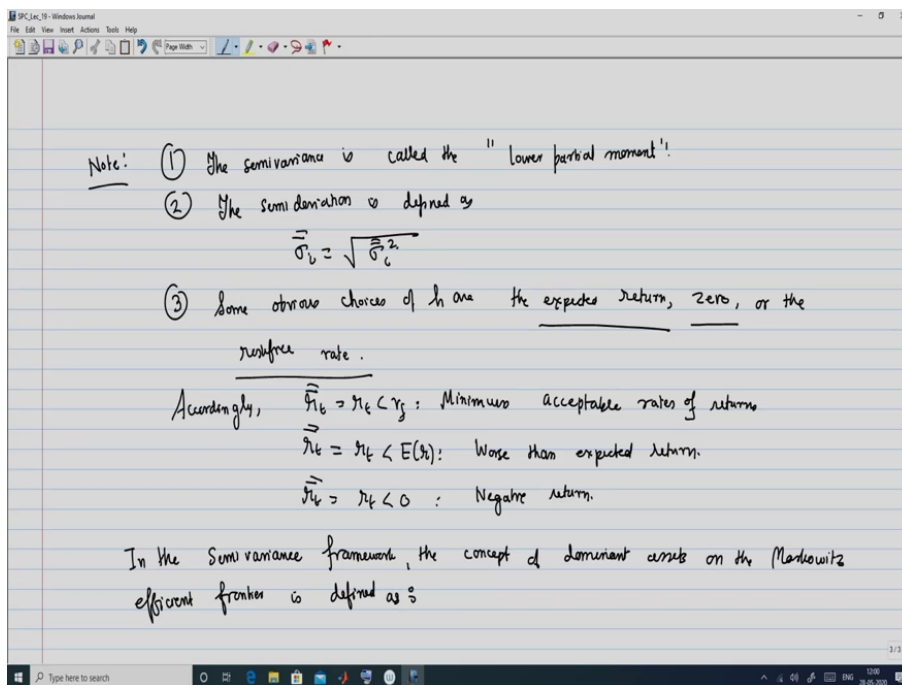 SPC_Lec_19 - Windows Journal
File Edit View Insert Actions Tools Help
Page Width
Note: ① The semivariance is called the "lower partial moment".
② The semideviation is defined as
σ̿ᵢ = √σ̿ᵢ²
③ Some obvious choices of h are the expected return, zero, or the
riskfree rate.
Accordingly, r̿ₜ = rₜ < r_f : Minimum acceptable rates of returns
r̿ₜ = rₜ < E(r): Worse than expected return.
r̿ₜ = rₜ < 0 : Negative return.
In the Semivariance framework, the concept of dominant assets on the Markowitz
efficient frontier is defined as :
3/3
Type here to search
ENG
12:00
28-05-2020